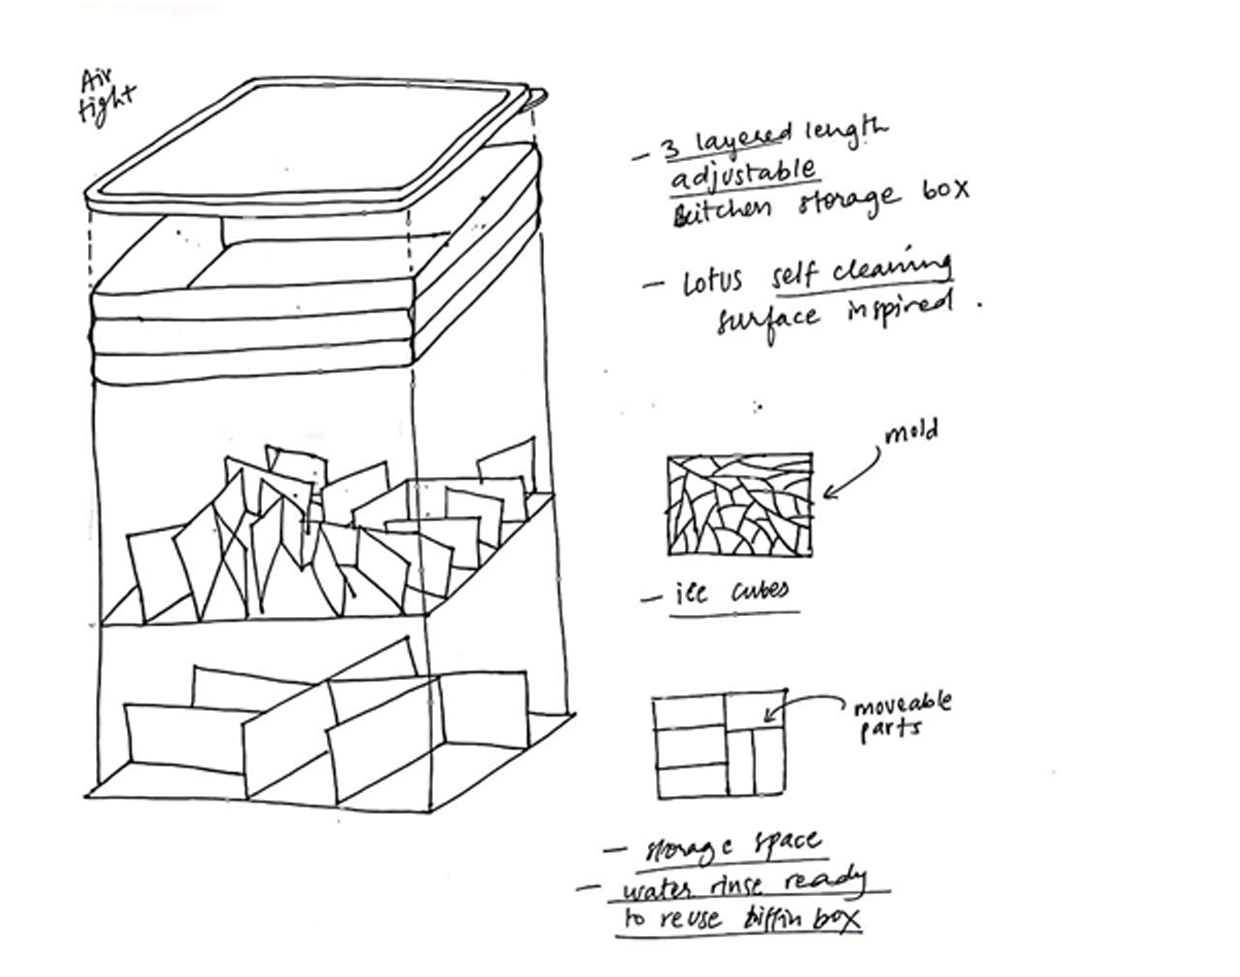 Air
tight
- 3 layered length
adjustable
kitchen storage box
- Lotus self cleaning
surface inspired .
mold
- ice cubes
moveable
parts
- storage space
- water rinse ready
to reuse tiffin box